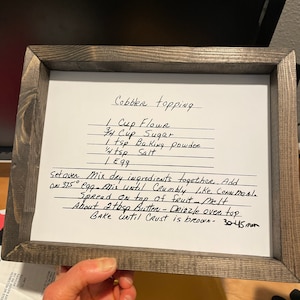 Cobbler topping
1 Cup Flour
3/4 Cup Sugar
1 tsp Baking powder
1/4 tsp Salt
1 Egg
Set oven Mix dry ingredients together. Add
on 375° Egg - Mix until Crumbly like Cornmeal.
Spread on top of fruit - Melt
About Butter - Drizzle over top
Bake until Crust is brown - 30-45 min